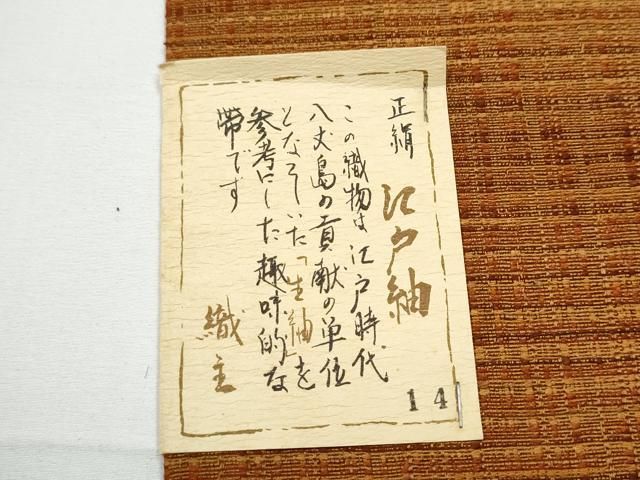 正絹 江戸紬
この織物は江戸時代
八丈島の貢献の単位
となっていた「生紬」を
参考にした趣味的な
帶です
織主
14